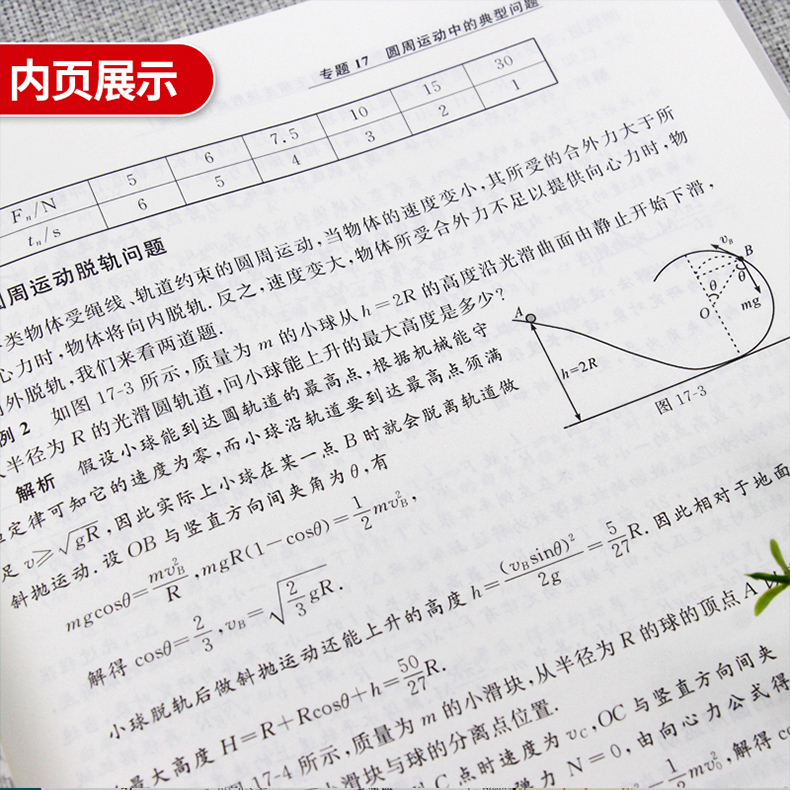 内页展示
专题 17 圆周运动中的典型问题
Fn/N 5 6 7.5 10 15 30
tn/s 6 5 4 3 2 1
周运动脱轨问题
类物体受绳线、轨道约束的圆周运动,当物体的速度变小,其所受的合外力大于所
心力时,物体将向内脱轨.反之,速度变大,物体所受合外力不足以提供向心力时,物
外脱轨,我们来看两道题.
例 2 如图 17-3 所示,质量为 m 的小球从 h=2R 的高度沿光滑曲面由静止开始下滑,
半径为 R 的光滑圆轨道,问小球能上升的最大高度是多少?
解析 假设小球能到达圆轨道的最高点,根据机械能守
定律可知它的速度为零,而小球沿轨道要到达最高点须满
足 v≥√gR,因此实际上小球在某一点 B 时就会脱离轨道做
斜抛运动.设 OB 与竖直方向间夹角为 θ,有
mgcosθ=mv_B^2/R,mgR(1-cosθ)=1/2 mv_B^2,
解得 cosθ=2/3,v_B=√(2/3 gR).
小球脱轨后做斜抛运动还能上升的高度 h=(v_B sinθ)^2/2g=5/27 R.因此相对于地面
最大高度 H=R+Rcosθ+h=50/27 R.
图 17-4 所示,质量为 m 的小滑块,从半径为 R 的球的顶点 A
小滑块与球的分离点位置.
C 点时速度为 v_C,OC 与竖直方向间夹
弹力 N=0,由向心力公式得
1/2 mv_0^2,解得 co
A
h=2R
v_B
B
θ
θ
O
mg
图 17-3